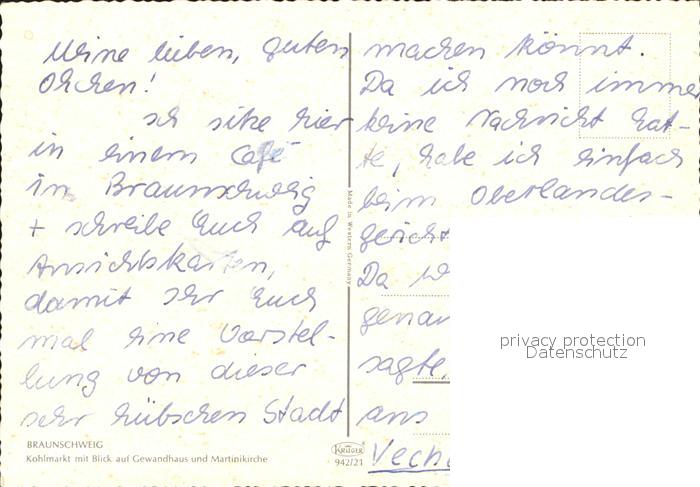 Meine lieben, guten
Ohchen!
Ich sitze hier
in einem Café
in Braunschweig
+ schreibe Euch auf
Ansichtskarten,
damit Ihr Euch
mal eine Vorstel-
lung von dieser
sehr hübschen Stadt
machen könnt.
Da ich noch immer
keine Nachricht hat-
te, habe ich einfach
beim Oberlandes-
gericht
Da
genau
sagte,
ans
Vech
BRAUNSCHWEIG
Kohlmarkt mit Blick auf Gewandhaus und Martinikirche
Made in Western Germany
KRÜGER
942/21
privacy protection
Datenschutz